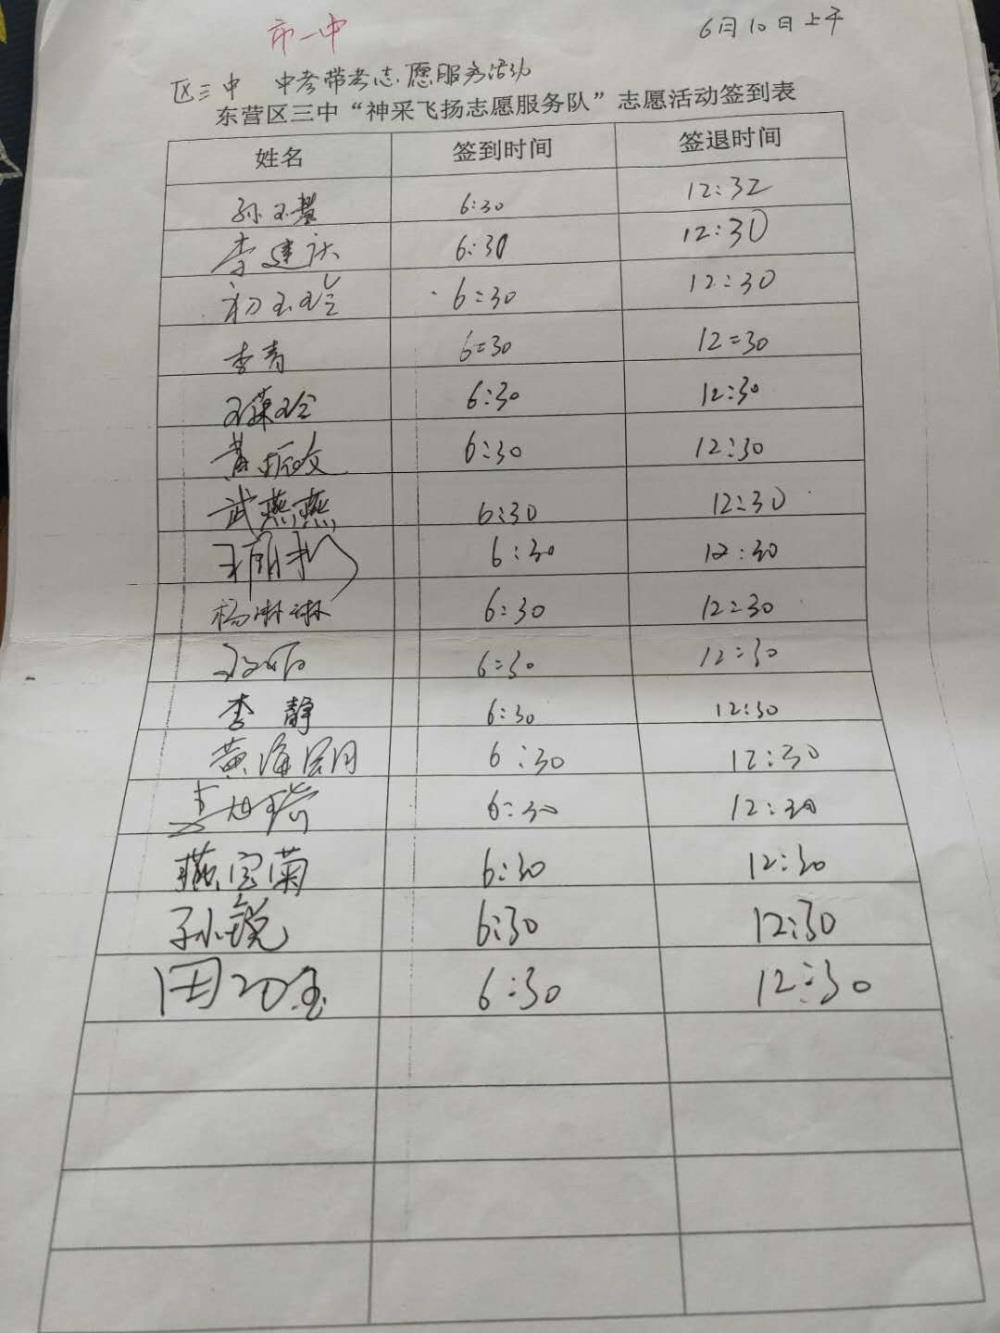 市一中
6月10日上午
区三中 中考带考志愿服务活动
东营区三中“神采飞扬志愿服务队”志愿活动签到表
姓名 签到时间 签退时间
6:30 12:32
李建庆 6:30 12:30
初玉玲 6:30 12:30
李青 6:30 12:30
6:30 12:30
黄 6:30 12:30
武燕燕 6:30 12:30
6:30 12:30
杨琳琳 6:30 12:30
6:30 12:30
李静 6:30 12:30
黄海 6:30 12:30
6:30 12:30
燕宝菊 6:30 12:30
孙锐 6:30 12:30
6:30 12:30